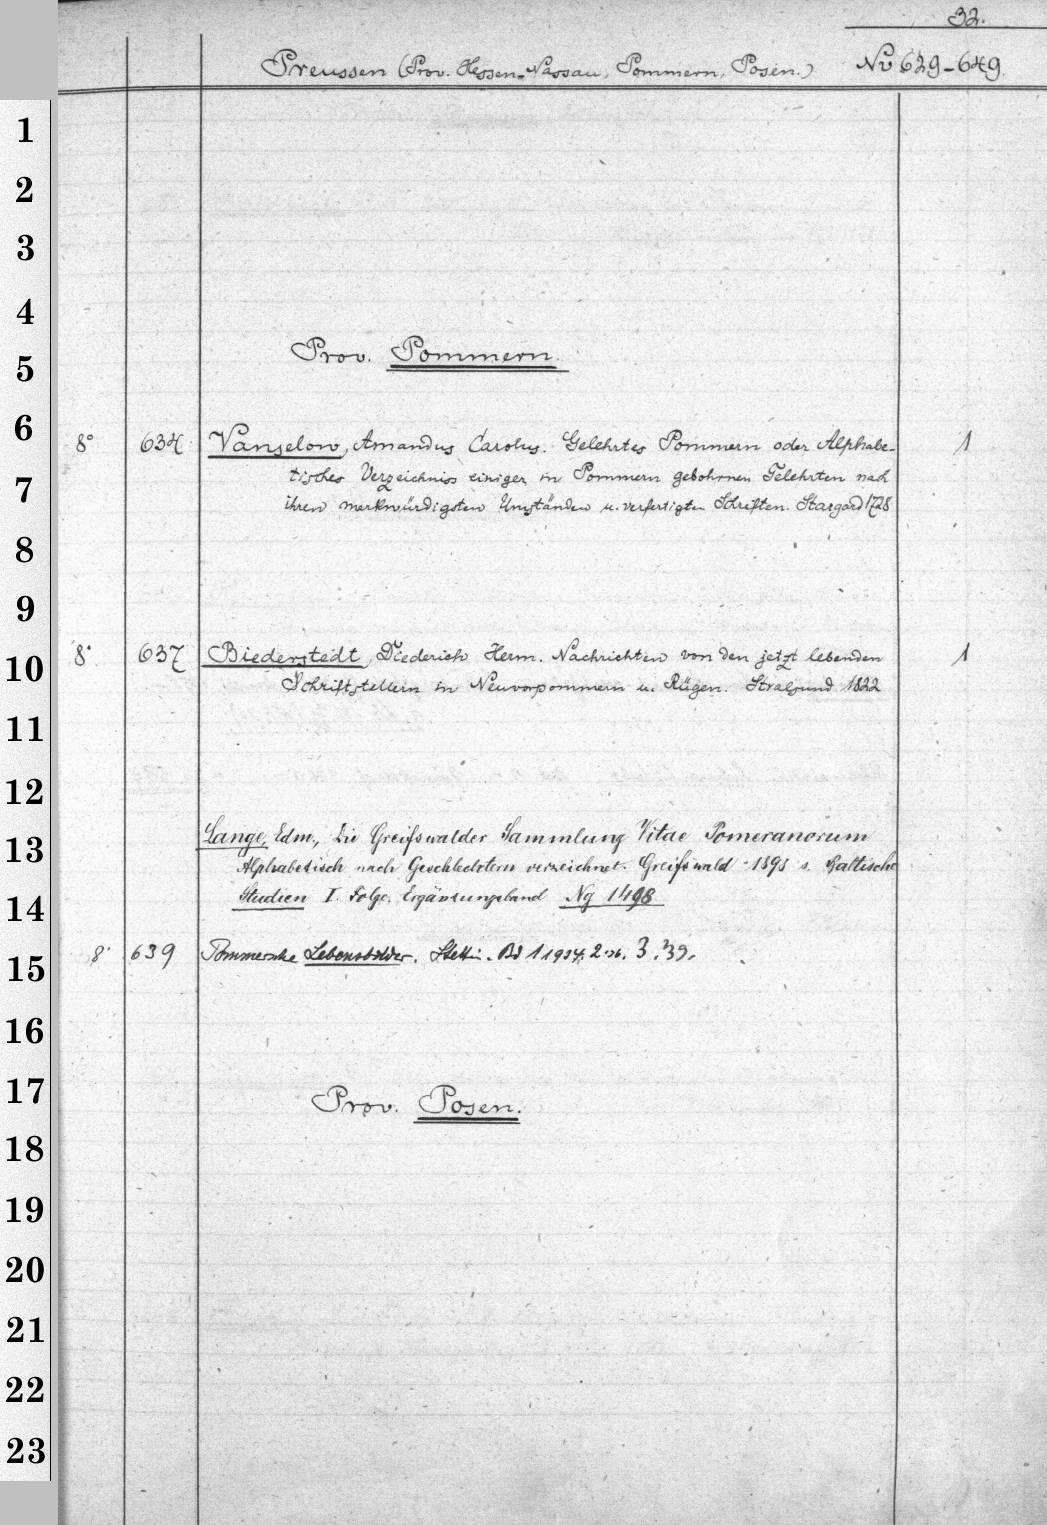 32.
Preussen (Prov. Hessen-Nassau, Pommern, Posen.) No 629-649.
1
2
3
4
Prov. Pommern.
5
6
8° 634 Vanselow, Amandus Carolus. Gelehrtes Pommern oder Alphabe- 1
tisches Verzeichniss einiger in Pommern gebohrnen Gelehrten nach
7
ihren merkwürdigsten Umständen u. verfertigten Schriften. Stargard 1728
8
9
8° 637 Biederstedt, Diederich Herm. Nachrichten von den jetzt lebenden 1
10
Schriftstellern in Neuvorpommern u. Rügen. Stralsund 1822
11
12
Lange, Edm., Die Greifswalder Sammlung Vitae Pomeranorum
13
Alphabetisch nach Geschlechtern verzeichnet. Greifswald 1898 s. Baltische
Studien I. Folge. Ergänzungsband Ng 1498
14
8° 639 Pommersche Lebensbilder. Stettin. Bd 1 1934. 2. 36. 3. 39.
15
16
17
Prov. Posen.
18
19
20
21
22
23